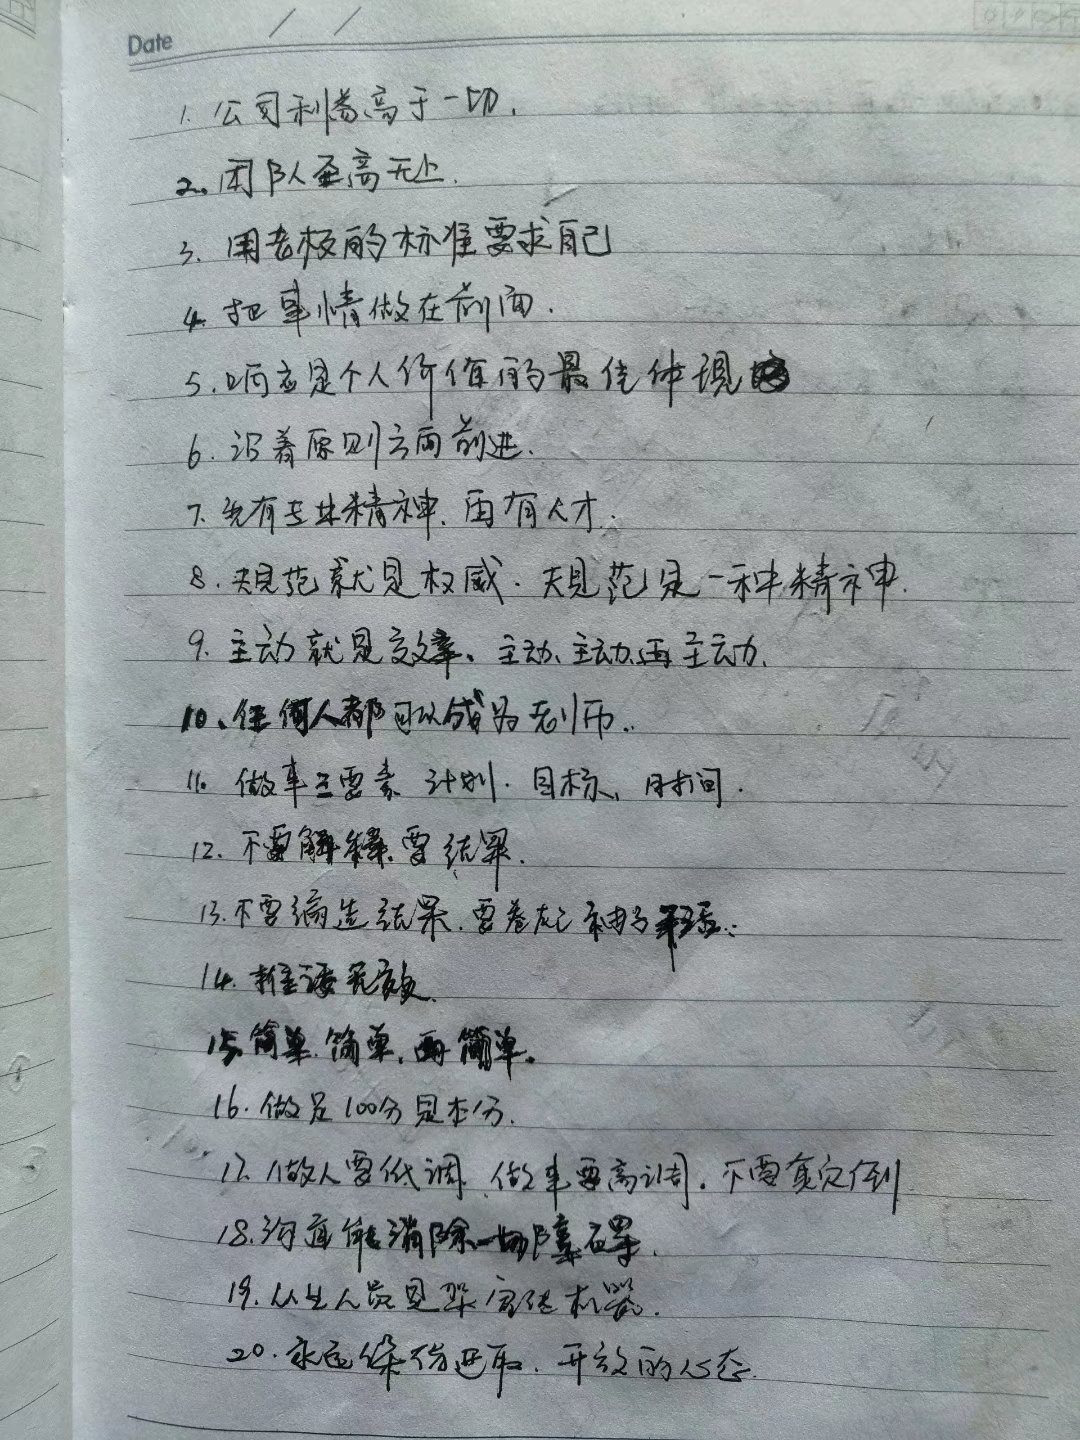 Date / /
1. 公司利益高于一切.
2. 团队至高无上.
3. 用老板的标准要求自己
4. 把事情做在前面.
5. 响应是个人价值的最佳体现
6. 沿着原则方向前进.
7. 先有专业精神. 再有人才.
8. 规范就是权威. 规范是一种精神.
9. 主动就是效率. 主动、主动、再主动.
10. 任何人都可以成为老师.
11. 做事三要素 计划. 目标、时间.
12. 不要解释. 要结果.
13. 不要编造结果. 要卷起袖子干活.
14. 推诿无效.
15. 简单. 简单. 再简单.
16. 做足100分是本分.
17. 做人要低调. 做事要高调. 不要颠倒
18. 沟通能消除一切障碍.
19. 从业人员是架宣传机器.
20. 永远保持进取. 开放的心态